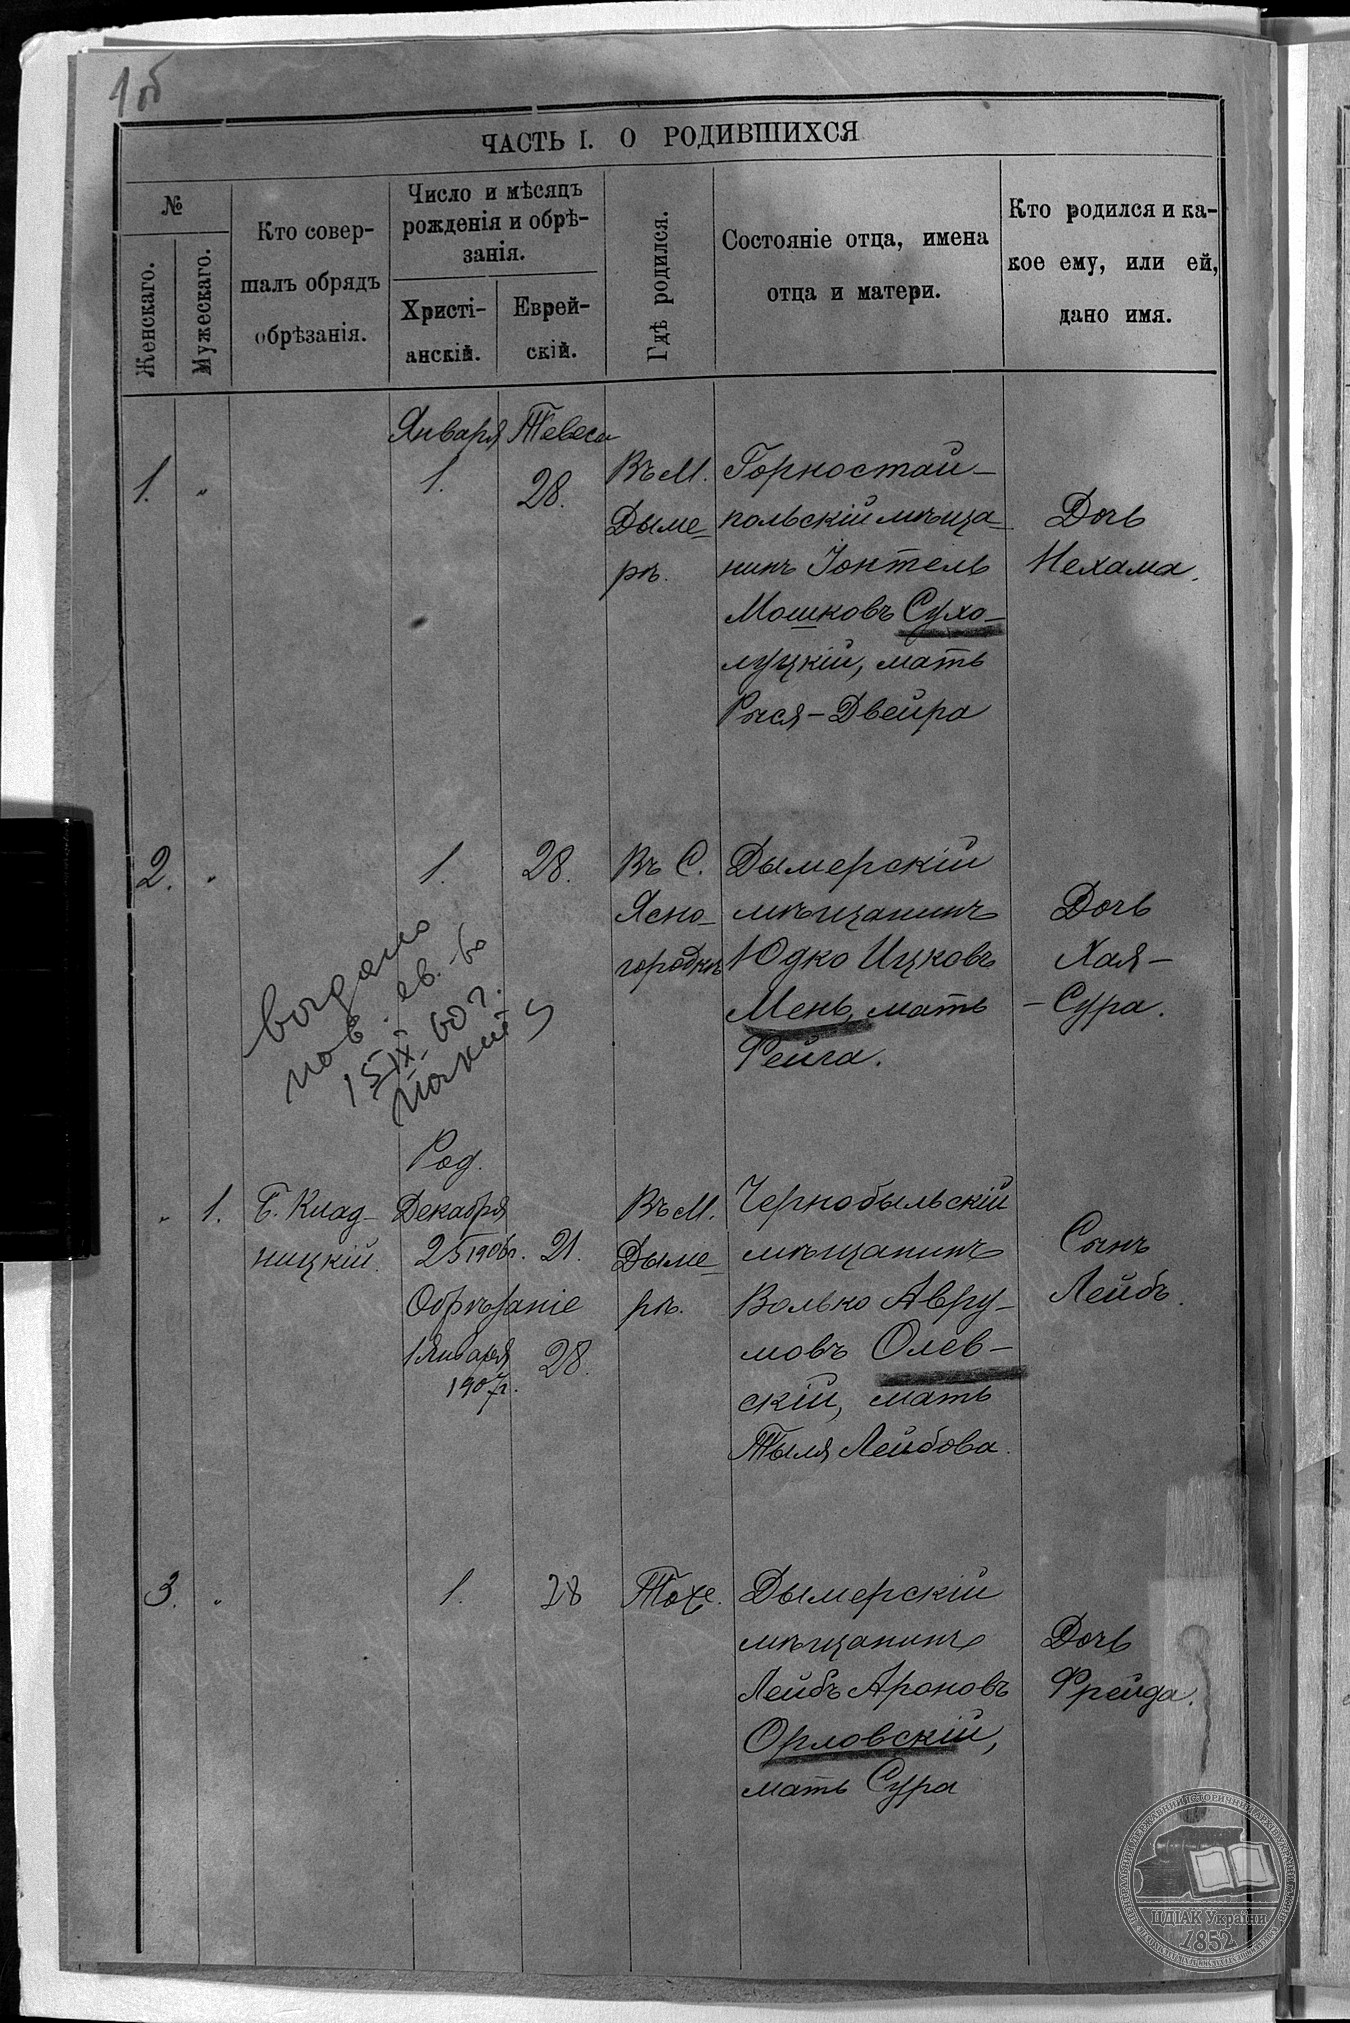 1об
ЧАСТЬ I. О РОДИВШИХСЯ
№
Женскаго.
Мужескаго.
Кто совер-
шалъ обрядъ
обрѣзанія.
Число и мѣсяцъ
рожденія и обрѣ-
занія.
Христі-
анскій.
Еврей-
скій.
Гдѣ родился.
Состояніе отца, имена
отца и матери.
Кто родился и ка-
кое ему, или ей,
дано имя.
Января Тевеса
1. " 1. 28.
Въ М.
Дыме-
рѣ.
Горностай-
польскій мѣща-
нинъ Іонтель
Мошковъ Сухо-
луцкій, мать
Рися-Двейра
Дочь
Нехама.
2. " 1. 28.
Въ С.
Ясно-
городкѣ
Дымерскій
мѣщанинъ
Юдко Ицковъ
Мень, мать
Фейга.
Дочь
Хая-
-Сура.
выдано
пов. св-во
15/IX-60 г.
" 1.
Б. Клад-
ницкій.
Род.
Декабря
25 1906г. 21.
Обрѣзаніе
1 Января 28.
1907г.
Въ М.
Дыме-
рѣ.
Чернобыльскій
мѣщанинъ
Волько Авру-
мовъ Олев-
скій, мать
Тыля Лейбова.
Сынъ
Лейбъ.
3. " 1. 28
Тоже.
Дымерскій
мѣщанинъ
Лейбъ Ароновъ
Орловскій,
мать Сура
Дочь
Фрейда.
ЦДІАК України
1852